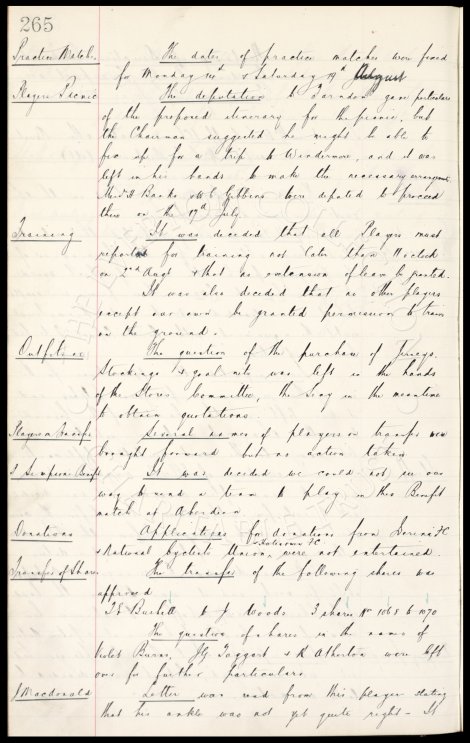 265
Practice Match. The dates of practice matches were fixed
for Monday 14th & Saturday 19th August
Players Picnic The deputation to Farndon gave particulars
of the proposed itinerary for the picnic, but
the Chairman suggested he might be able to
fix up for a trip to Windermere, and it was
left in his hands to make the necessary arrangemts.
Messrs H Banks & W C Gibbins were deputed to proceed
there on the 17th July.
Training It was decided that all Players must
report for training not later than 11 o'clock
on 2nd Augt & that no extension of leave be granted.
It was also decided that no other players
except our own be granted permission to train
on the ground.
Outfit The question of the purchase of Jerseys.
Stockings & goal nets was left in the hands
of the Stores Committee, the Secy in the meantime
to obtain quotations.
Players on transfer Several names of players on transfer were
brought forward but no action taken
J Simpsons Benefit It was decided we could not see our
way to send a team to play in this Benefit
match at Aberdeen
Donations Applications for donations from FC
& National Cyclists Union, FC were not entertained.
Transfer of Shares The transfer of the following shares was
approved
to J Woods 3 shares Nos 1068 to 1070
The question of shares in the name of
Violet Burns, J G Taggart & R Atherton were left
over for further particulars
J Macdonald Letter was read from this player stating
that his ankle was not yet quite right - It